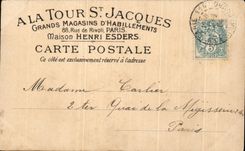 A LA TOUR ST JACQUES
GRANDS MAGASINS D'HABILLEMENTS
88, Rue de Rivoli, PARIS
Maison HENRI ESDERS
CARTE POSTALE
Ce côté est exclusivement réservé à l'adresse
Madame Carlier
2 ter Quai de la Mégisserie
Paris